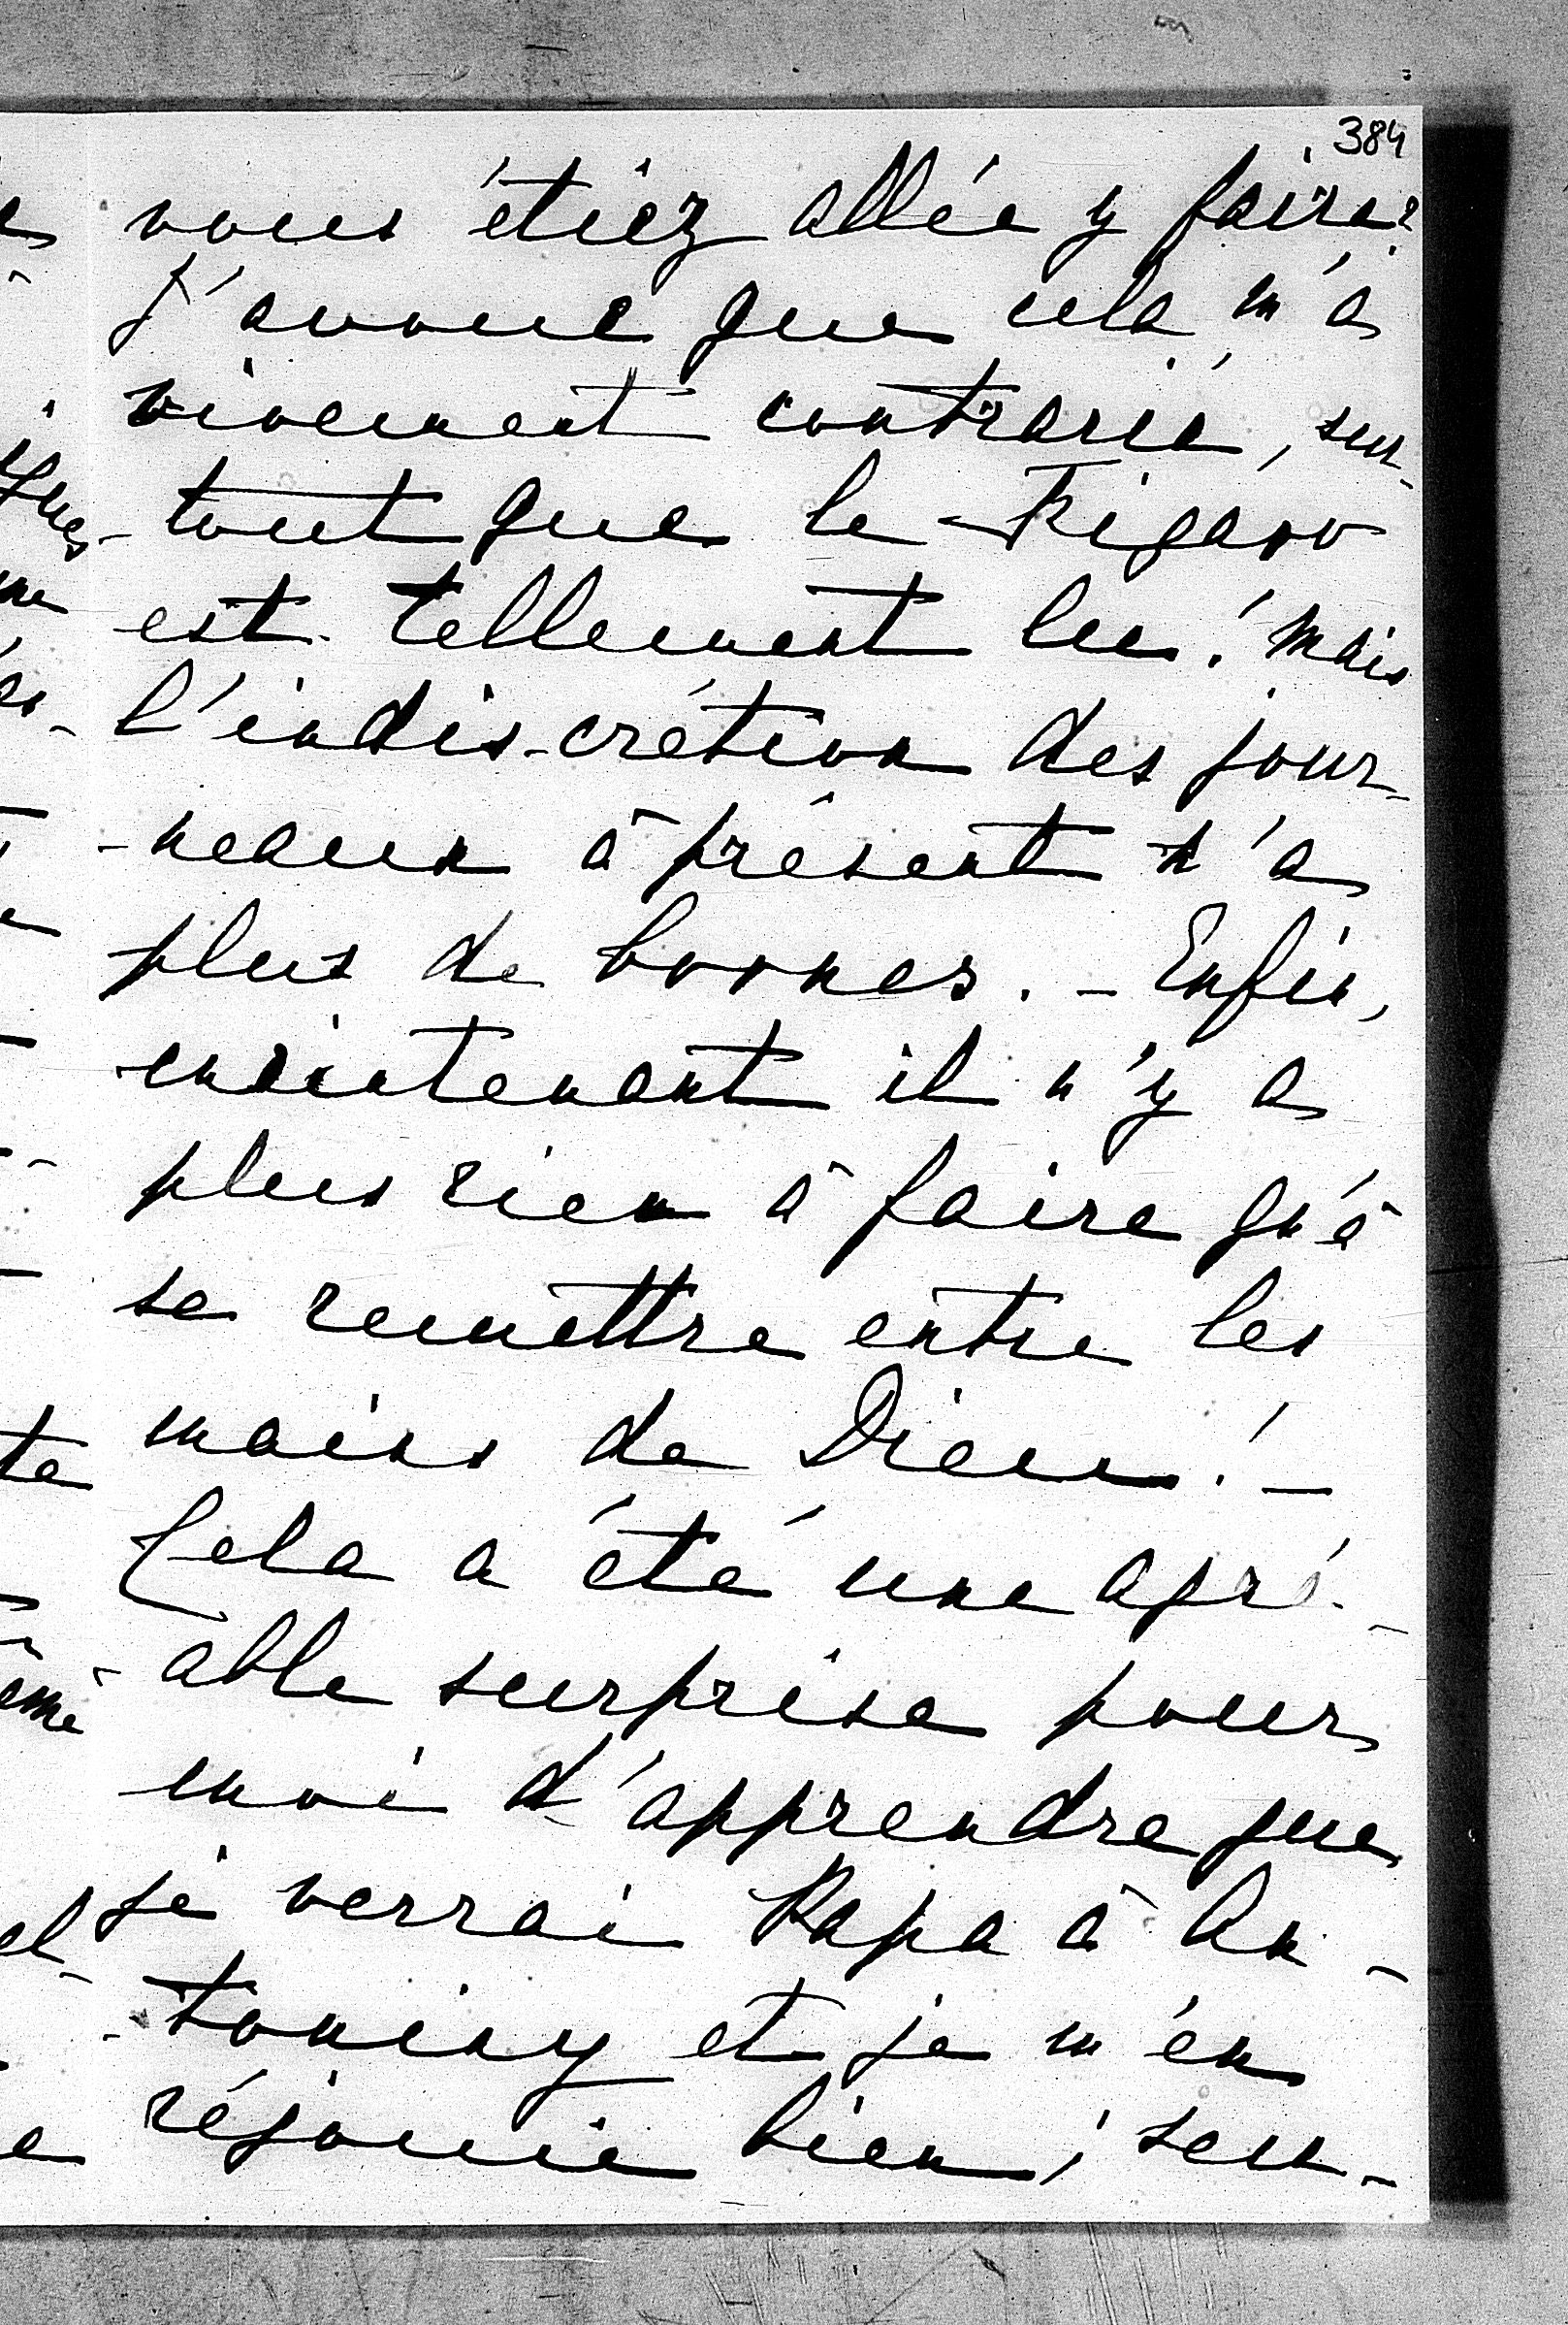 384
vous étiez allée y faire?
J'avoue que cela m'a
vivement contrarié, sur-
-tout que le Figaro
est tellement lu! Mais
l'indis-crétion des jour-
-neaux à présent n'a
plus de bornes. - Enfin,
maintenant il n'y a
plus rien à faire qu'à
se remettre entre les
mains de Dieu! -
Cela a été une agré-
able surprise pour
moi d'apprendre que
je verrai Papa à An-
-toniny et je m'en
réjouie bien; seu-